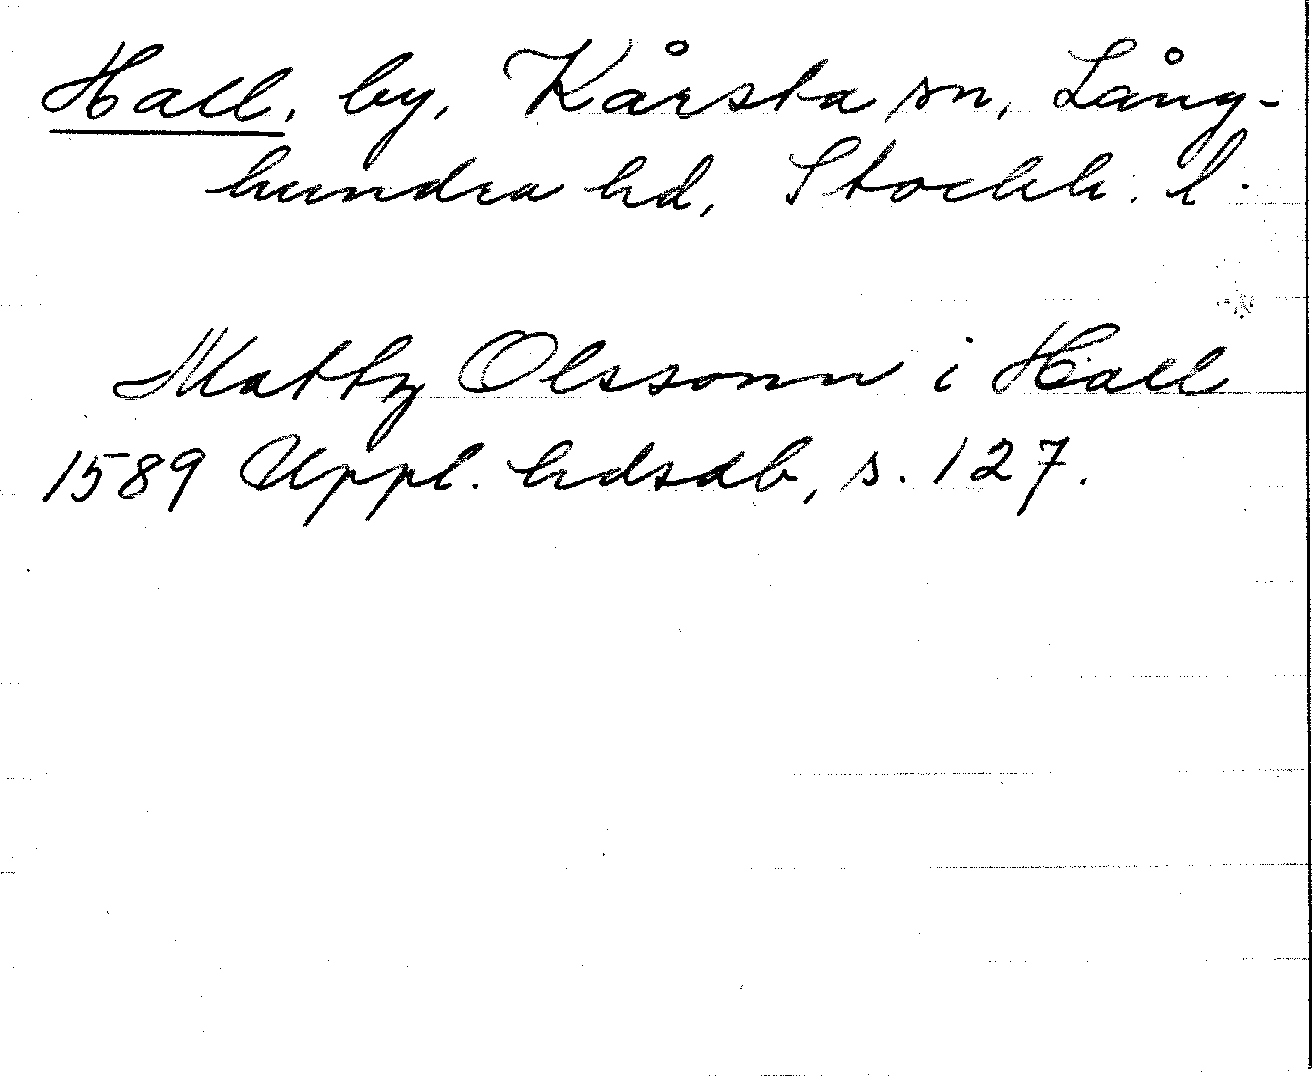 Hall, by, Kårsta sn, Lång-
hundra hd, Stockh. l.
Mattz Olssonn i Hall
1589 Uppl. hdsdb, s. 127.